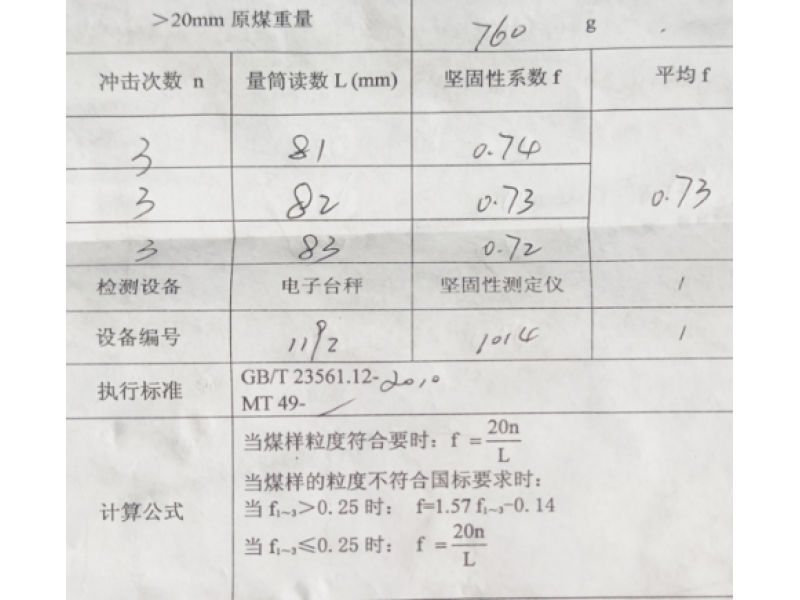 >20mm 原煤重量 760 g
冲击次数 n 量筒读数 L (mm) 坚固性系数 f 平均 f
3 81 0.74
3 82 0.73 0.73
3 83 0.72
检测设备 电子台秤 坚固性测定仪 /
设备编号 1192 1014 /
执行标准 GB/T 23561.12-2010
MT 49- /
当煤样粒度符合要时: f = 20n/L
当煤样的粒度不符合国标要求时:
计算公式 当 f₁~₃>0.25 时: f=1.57 f₁~₃-0.14
当 f₁~₃≤0.25 时: f = 20n/L